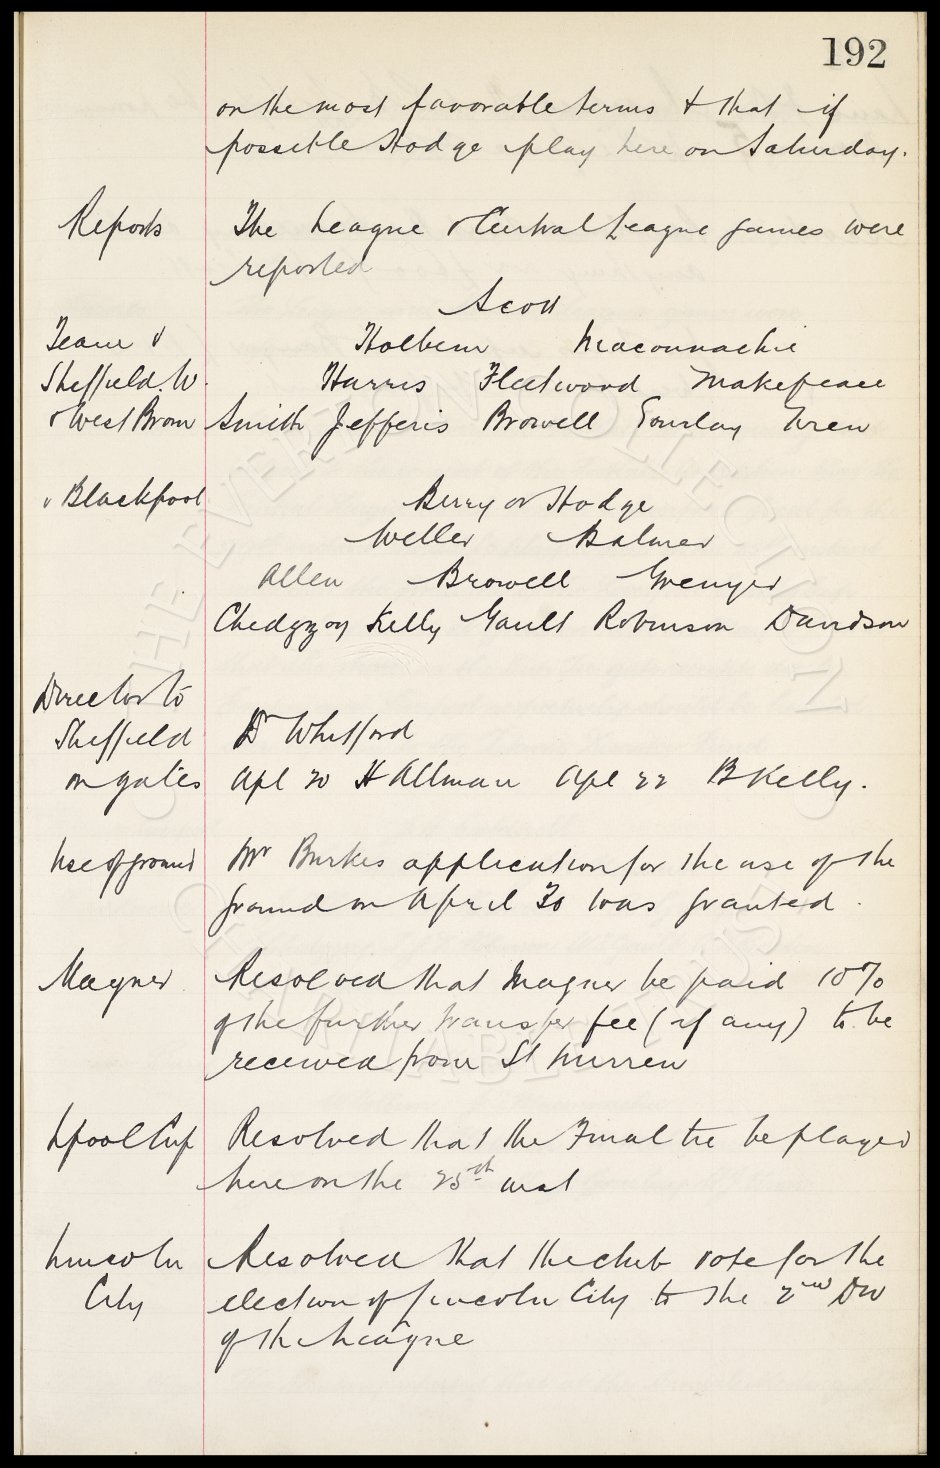 192
on the most favorable terms & that if
possible Hodge play here on Saturday.
Reports The League & Central League games were
reported
Scott
Team v Holbem Maconnachie
Sheffield. W. Harris Fleetwood Makepeace
& West Brom Smith Jefferis Browell Gourlay Wren
v Blackpool Berry or Hodge
Weller Balmer
Allen Browell Grenyer
Chedgzoy Kelly Gault Robinson Davidson
Director to
Sheffield Dr Whitford
on gates Apl 20 H Allman Apl 22 B Kelly.
Use of ground Mr Burkes application for the use of the
ground on April 30 was granted.
Magner Resolved that Magner be paid 10%
of the further transfer fee (if any) to be
received from St Mirren
Lpool Cup Resolved that the Final tie be played
here on the 25th inst
Lincoln Resolved that the club vote for the
City election of Lincoln City to the 2nd Div
of the League
THE EVERTON COLLECTION
CHARITABLE TRUST